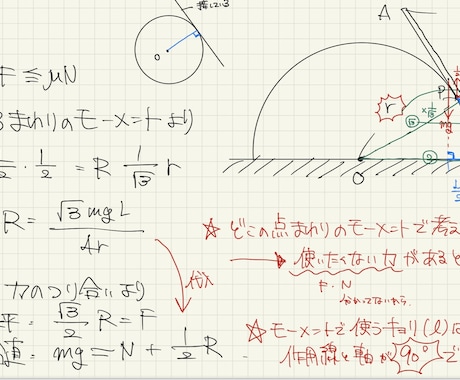 接している
O
F ≦ μN
まわりのモーメントより
· 1/2 = R 1/√3 r
R = √3 mgL / 4r
力のつり合いより
代入
平: √3/2 R = F
mg = N + 1/2 R
A
P
r
×1/√3
√3
mg
2
O
1/2
☆ どこの点まわりのモーメントで考え
→ 使いたくない力があると
F・N
分かってないから
☆ モーメントで使うキョリ(l)は
作用線と軸が 90° で